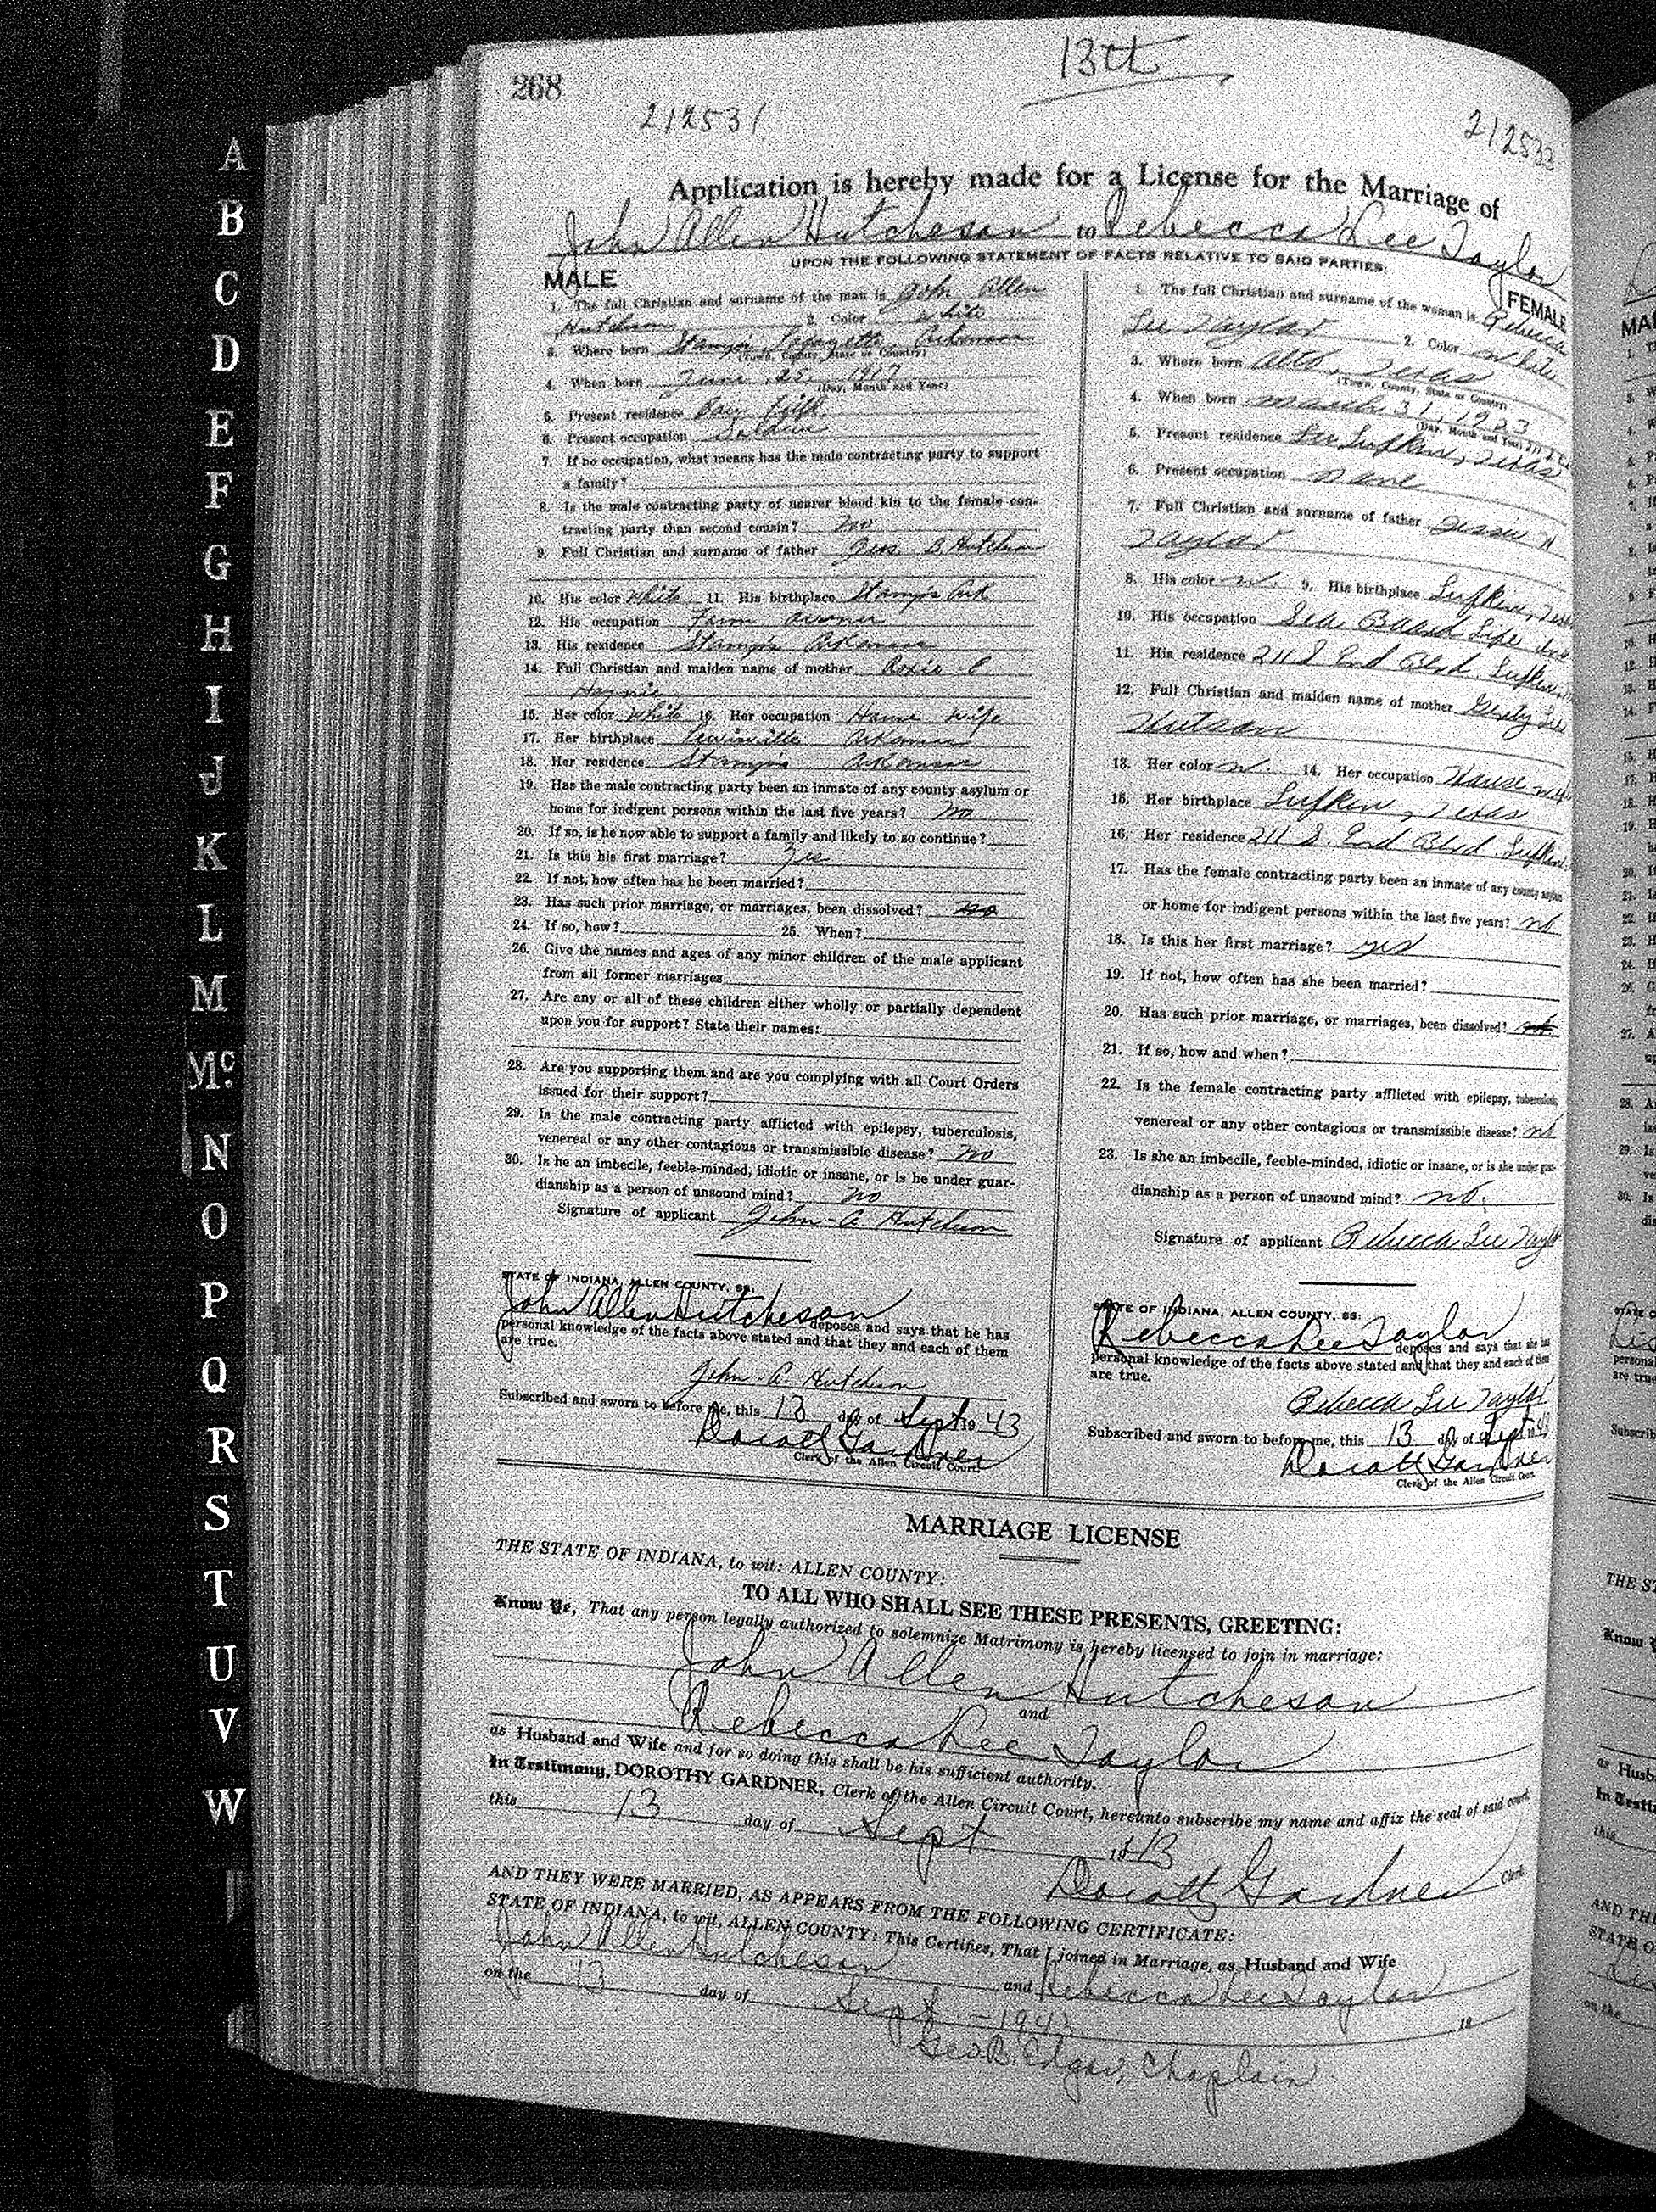 268
13th
212531
212533
Application is hereby made for a License for the Marriage of
John Allen Hutcheson to Rebecca Lee Taylor
UPON THE FOLLOWING STATEMENT OF FACTS RELATIVE TO SAID PARTIES:
MALE
1. The full Christian and surname of the man is John Allen
Hutcheson 2. Color White
3. Where born Stamps, Lafayette, Arkansas
(Town, County, State or Country)
4. When born June 25, 1917
(Day, Month and Year)
5. Present residence Baer Field
6. Present occupation Soldier
7. If no occupation, what means has the male contracting party to support
a family?
8. Is the male contracting party of nearer blood kin to the female con-
tracting party than second cousin? No
9. Full Christian and surname of father Geo. B. Hutcheson
10. His color White 11. His birthplace Stamps Ark
12. His occupation Farm owner
13. His residence Stamps Arkansas
14. Full Christian and maiden name of mother Roxie C.
Haynie
15. Her color White 16. Her occupation House Wife
17. Her birthplace Lewisville Arkansas
18. Her residence Stamps Arkansas
19. Has the male contracting party been an inmate of any county asylum or
home for indigent persons within the last five years? No
20. If so, is he now able to support a family and likely to so continue?
21. Is this his first marriage? Yes
22. If not, how often has he been married?
23. Has such prior marriage, or marriages, been dissolved? No
24. If so, how? 25. When?
26. Give the names and ages of any minor children of the male applicant
from all former marriages
27. Are any or all of these children either wholly or partially dependent
upon you for support? State their names:
28. Are you supporting them and are you complying with all Court Orders
issued for their support?
29. Is the male contracting party afflicted with epilepsy, tuberculosis,
venereal or any other contagious or transmissible disease? No
30. Is he an imbecile, feeble-minded, idiotic or insane, or is he under guar-
dianship as a person of unsound mind? No
Signature of applicant John A. Hutcheson
STATE OF INDIANA, ALLEN COUNTY, SS:
John Allen Hutcheson deposes and says that he has
personal knowledge of the facts above stated and that they and each of them
are true.
John A. Hutcheson
Subscribed and sworn to before me, this 13 day of Sept 19 43
Dorothy Gardner
Clerk of the Allen Circuit Court.
FEMALE
1. The full Christian and surname of the woman is Rebecca
Lee Taylor 2. Color White
3. Where born Alto, Texas
(Town, County, State or Country)
4. When born March 31, 1923
(Day, Month and Year)
5. Present residence Lufkin, Texas
6. Present occupation None
7. Full Christian and surname of father Jessie W
Taylor
8. His color W. 9. His birthplace Lufkin, Texas
10. His occupation Sea Board Life Ins
11. His residence 211 S End Blvd. Lufkin,
12. Full Christian and maiden name of mother Lee
Hutson
13. Her color W. 14. Her occupation House wife
15. Her birthplace Lufkin, Texas
16. Her residence 211 S. End Blvd. Lufkin,
17. Has the female contracting party been an inmate of any county asylum
or home for indigent persons within the last five years? no
18. Is this her first marriage? yes
19. If not, how often has she been married?
20. Has such prior marriage, or marriages, been dissolved? no
21. If so, how and when?
22. Is the female contracting party afflicted with epilepsy, tuberculosis,
venereal or any other contagious or transmissible disease? no
23. Is she an imbecile, feeble-minded, idiotic or insane, or is she under guar-
dianship as a person of unsound mind? no.
Signature of applicant Rebecca Lee Taylor
STATE OF INDIANA, ALLEN COUNTY, SS:
Rebecca Lee Taylor deposes and says that she has
personal knowledge of the facts above stated and that they and each of them
are true.
Rebecca Lee Taylor
Subscribed and sworn to before me, this 13 day of Sept 19 43
Dorothy Gardner
Clerk of the Allen Circuit Court.
MARRIAGE LICENSE
THE STATE OF INDIANA, to wit: ALLEN COUNTY:
TO ALL WHO SHALL SEE THESE PRESENTS, GREETING:
Know Ye, That any person legally authorized to solemnize Matrimony is hereby licensed to join in marriage:
John Allen Hutcheson
and
Rebecca Lee Taylor
as Husband and Wife and for so doing this shall be his sufficient authority.
In Testimony, DOROTHY GARDNER, Clerk of the Allen Circuit Court, hereunto subscribe my name and affix the seal of said court,
this 13 day of Sept 1943
Dorothy Gardner Clerk
AND THEY WERE MARRIED, AS APPEARS FROM THE FOLLOWING CERTIFICATE:
STATE OF INDIANA, to wit, ALLEN COUNTY: This Certifies, That I joined in Marriage, as Husband and Wife
John Allen Hutcheson and Rebecca Lee Taylor
on the 13 day of Sept - 1943 19
Geo. B. Edgar, Chaplain
A
B
C
D
E
F
G
H
I
J
K
L
M
Mc
N
O
P
Q
R
S
T
U
V
W